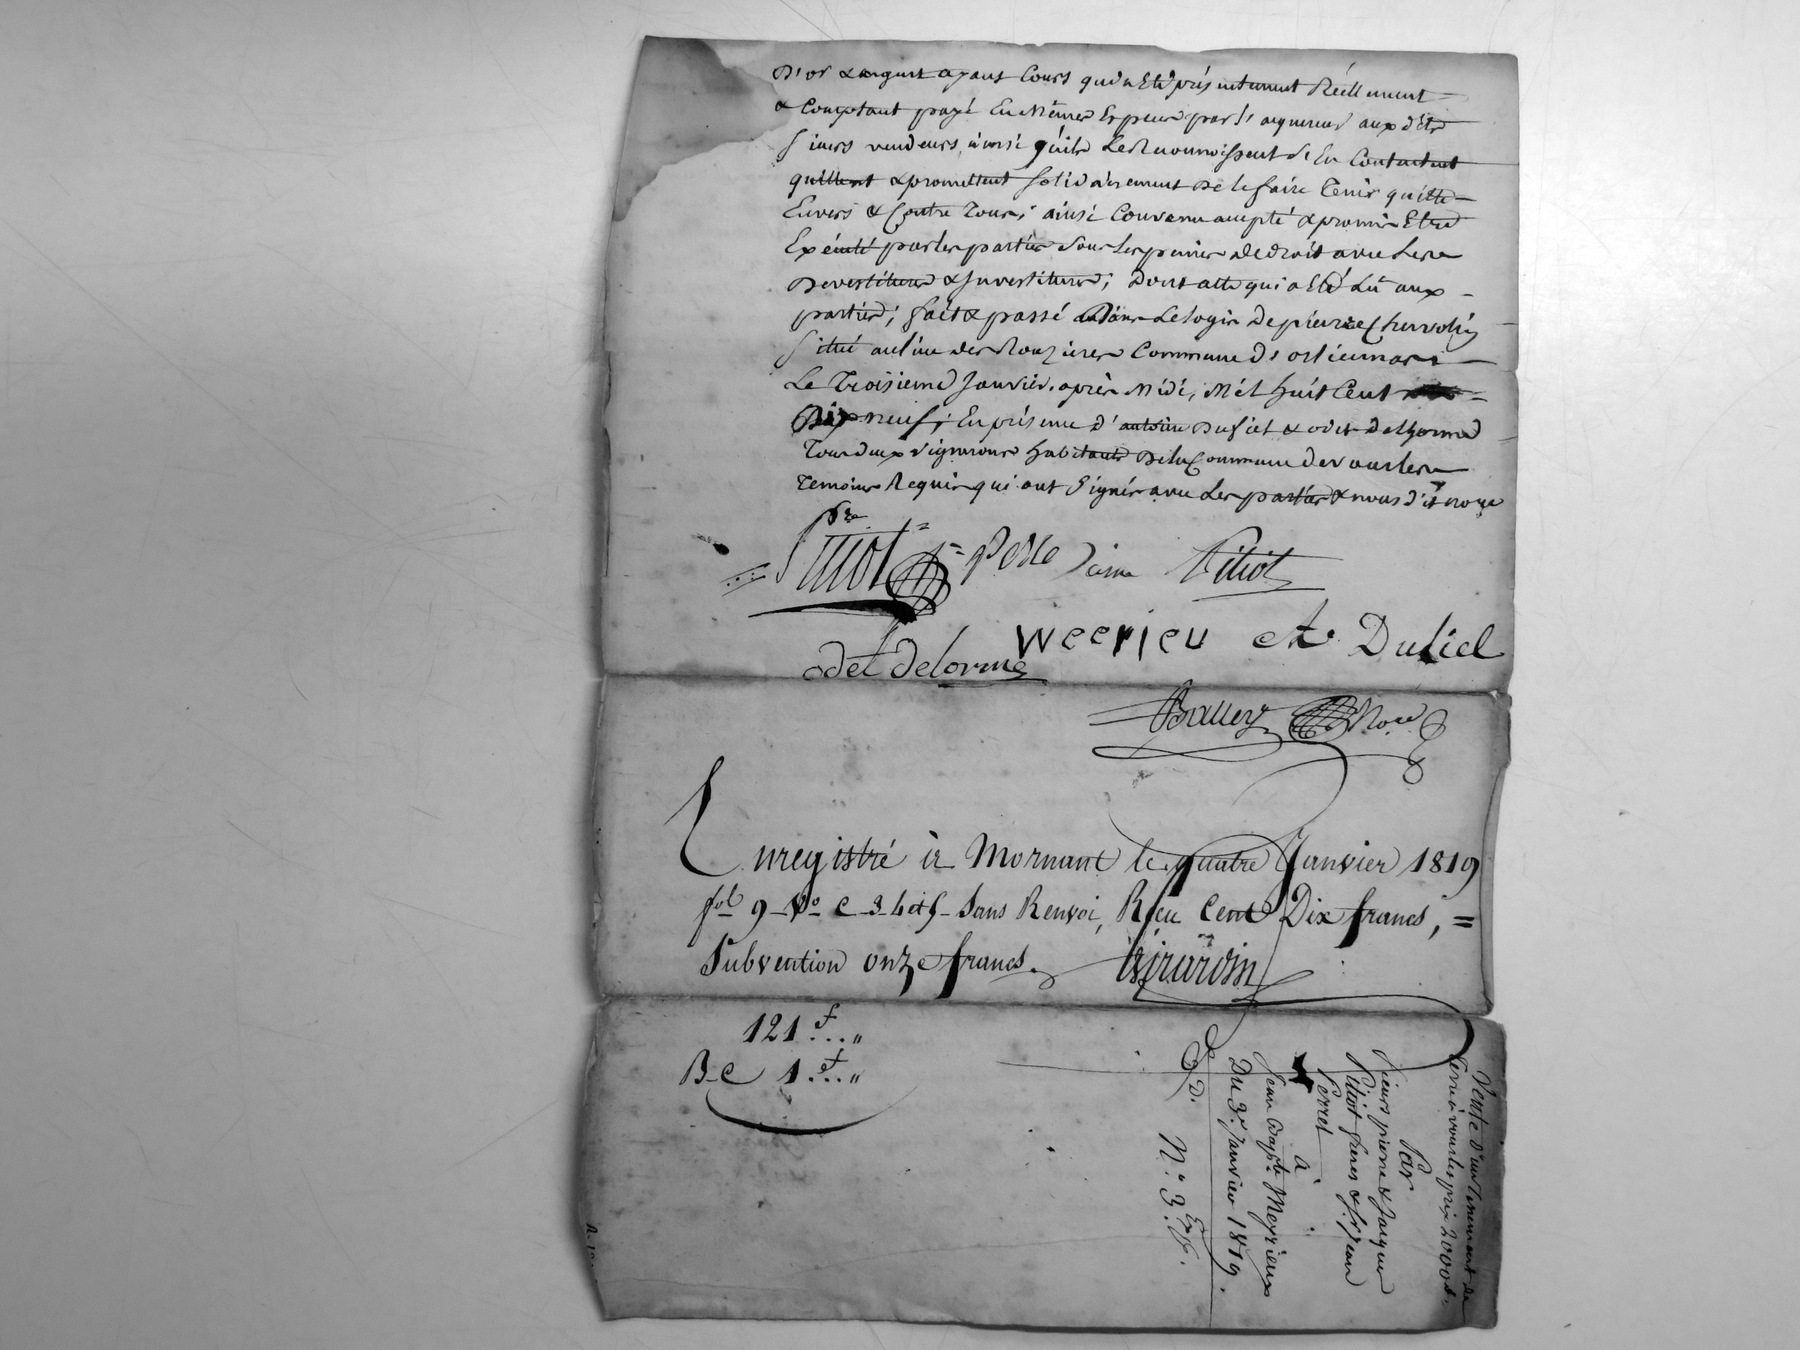 D'or & argent ayant Cours qui a Eté présentement Réellement
& Comptant payé En Mêmes Espèces par l'aquereur aux dits
Sieurs vendeurs, ainsi qu'ils Le Reconnoissent s'En Contentent
quittent & promettent solidairement De le faire Tenir quitte
Envers & Contre Tous; ainsi Convenu accepté & promis Etre
Exécuté par les parties sous Les peines de droit avec Les
Devestiture & Investiture; Dont acte qui a Eté Lû aux
parties; fait & passé Dans Le logis De pierre
Situé au lieu des Rouzieres Commune D'orlienas
Le Troisieme Janvier, après Midi, Mil huit Cent
Dix neuf; En présence d'antoine Dufiet & odet Delhorme
Tous deux vignerons habitants De la Commune de vourles
Temoins Requis qui ont Signés avec Les parties & nous dit no.re
Pre
Pitiot Perre Jâme Pitiot
weerieu Ate Dufiel
odet delorme
Ballery No.re
Enregistré à Mornant le quatre Janvier 1819
fol 9 Vo C 3 4 et 5 Sans Renvoi, Reçu Cent Dix francs, =
Subvention onze francs. Girardin
121 f ... "
B-C 1 f ... "
Vente D'un Tenement de
Terre à vourles prix 2000 f.
Par
Sieurs pierre & Jacques
Pitiot freres & Sr. Jean
Perret
à
Jean Bapte. Meyrieux
Du 3e. Janvier 1819.
D.
N.° 3.